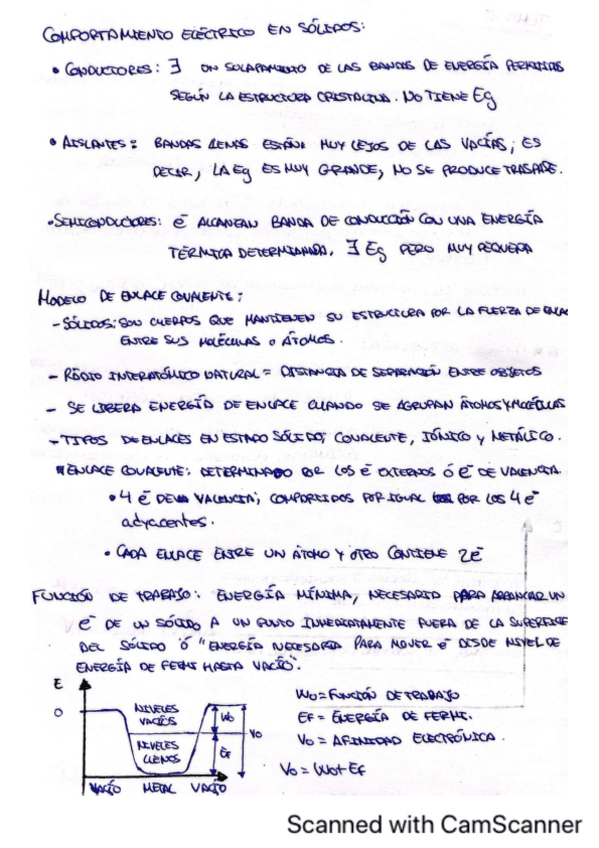 COMPORTAMIENTO ELÉCTRICO EN SÓLIDOS:
• CONDUCTORES: ∃ UN SOLAPAMIENTO DE LAS BANDAS DE ENERGÍA PERMITIDAS
SEGÚN LA ESTRUCTURA CRISTALINA. NO TIENE Eg
• AISLANTES: BANDAS LLENAS ESTÁN MUY LEJOS DE LAS VACÍAS; ES
DECIR, LA Eg ES MUY GRANDE, NO SE PRODUCE TRASPASE.
• SEMICONDUCTORES: ē ALCANZAN BANDA DE CONDUCCIÓN CON UNA ENERGÍA
TÉRMICA DETERMINADA. ∃ Eg PERO MUY PEQUEÑA
MODELO DE ENLACE COVALENTE:
- SÓLIDOS: SON CUERPOS QUE MANTIENEN SU ESTRUCTURA POR LA FUERZA DE ENLAC
ENTRE SUS MOLÉCULAS O ÁTOMOS.
- RADIO INTERATÓMICO NATURAL = DISTANCIA DE SEPARACIÓN ENTRE OBJETOS
- SE LIBERA ENERGÍA DE ENLACE CUANDO SE AGRUPAN ÁTOMOS Y MOLÉCULAS
- TIPOS DE ENLACES EN ESTADO SÓLIDO; COVALENTE, IÓNICO Y METÁLICO.
ENLACE COVALENTE: DETERMINADO POR LOS ē EXTERNOS Ó ē DE VALENCIA.
• 4 ē DE VALENCIA; COMPARTIDOS POR IGUAL POR LOS 4 ē
adyacentes.
• CADA ENLACE ENTRE UN ÁTOMO Y OTRO CONTIENE 2ē
FUNCIÓN DE TRABAJO: ENERGÍA MÍNIMA, NECESARIA PARA ARRANCAR UN
ē DE UN SÓLIDO A UN PUNTO INMEDIATAMENTE FUERA DE LA SUPERFICIE
DEL SÓLIDO Ó "ENERGÍA NECESARIA PARA MOVER ē DESDE NIVEL DE
ENERGÍA DE FERMI HASTA VACÍO".
E
O
NIVELES
VACÍOS
NIVELES
LLENOS
Wo
EF
Vo
VACÍO METAL VACÍO
Wo = FUNCIÓN DE TRABAJO
EF = ENERGÍA DE FERMI.
Vo = AFINIDAD ELECTRÓNICA.
Vo = Wo + EF
Scanned with CamScanner